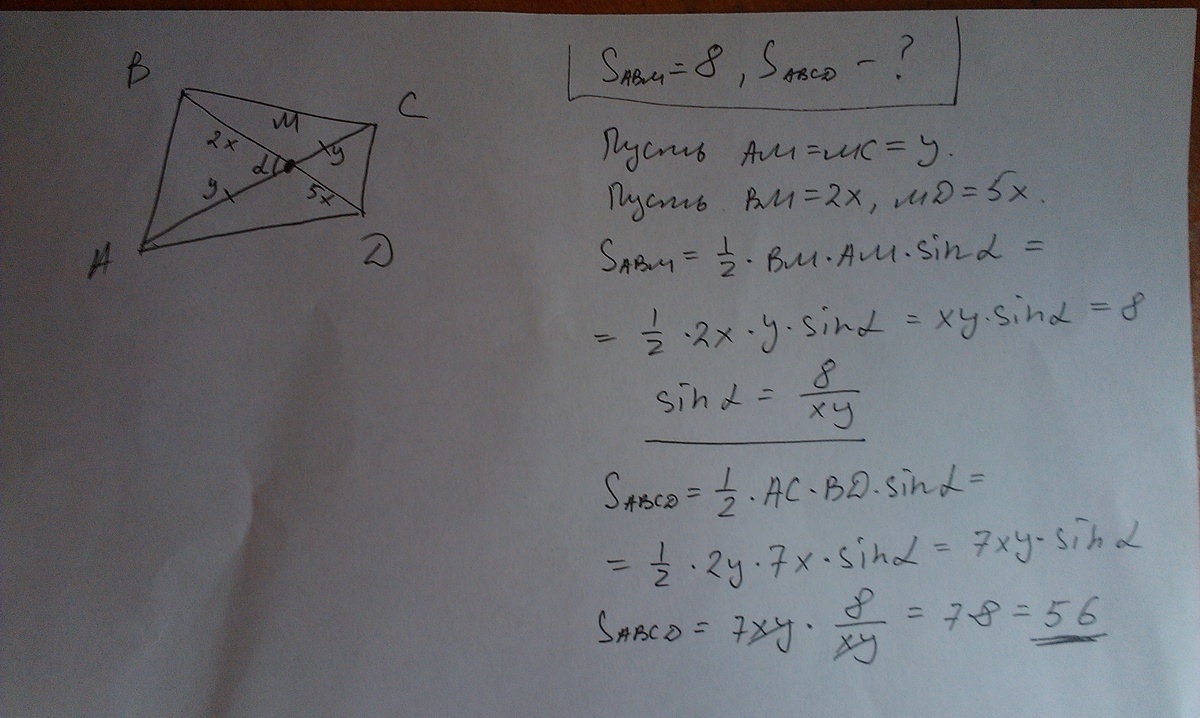 B
C
M
2x
y
α
y
5x
A
D
S_ABM = 8, S_ABCD - ?
Пусть AM = MC = y.
Пусть BM = 2x, MD = 5x.
S_ABM = 1/2 · BM · AM · sin α =
= 1/2 · 2x · y · sin α = xy · sin α = 8
sin α = 8/xy
S_ABCD = 1/2 · AC · BD · sin α =
= 1/2 · 2y · 7x · sin α = 7xy · sin α
S_ABCD = 7xy · 8/xy = 7·8 = 56